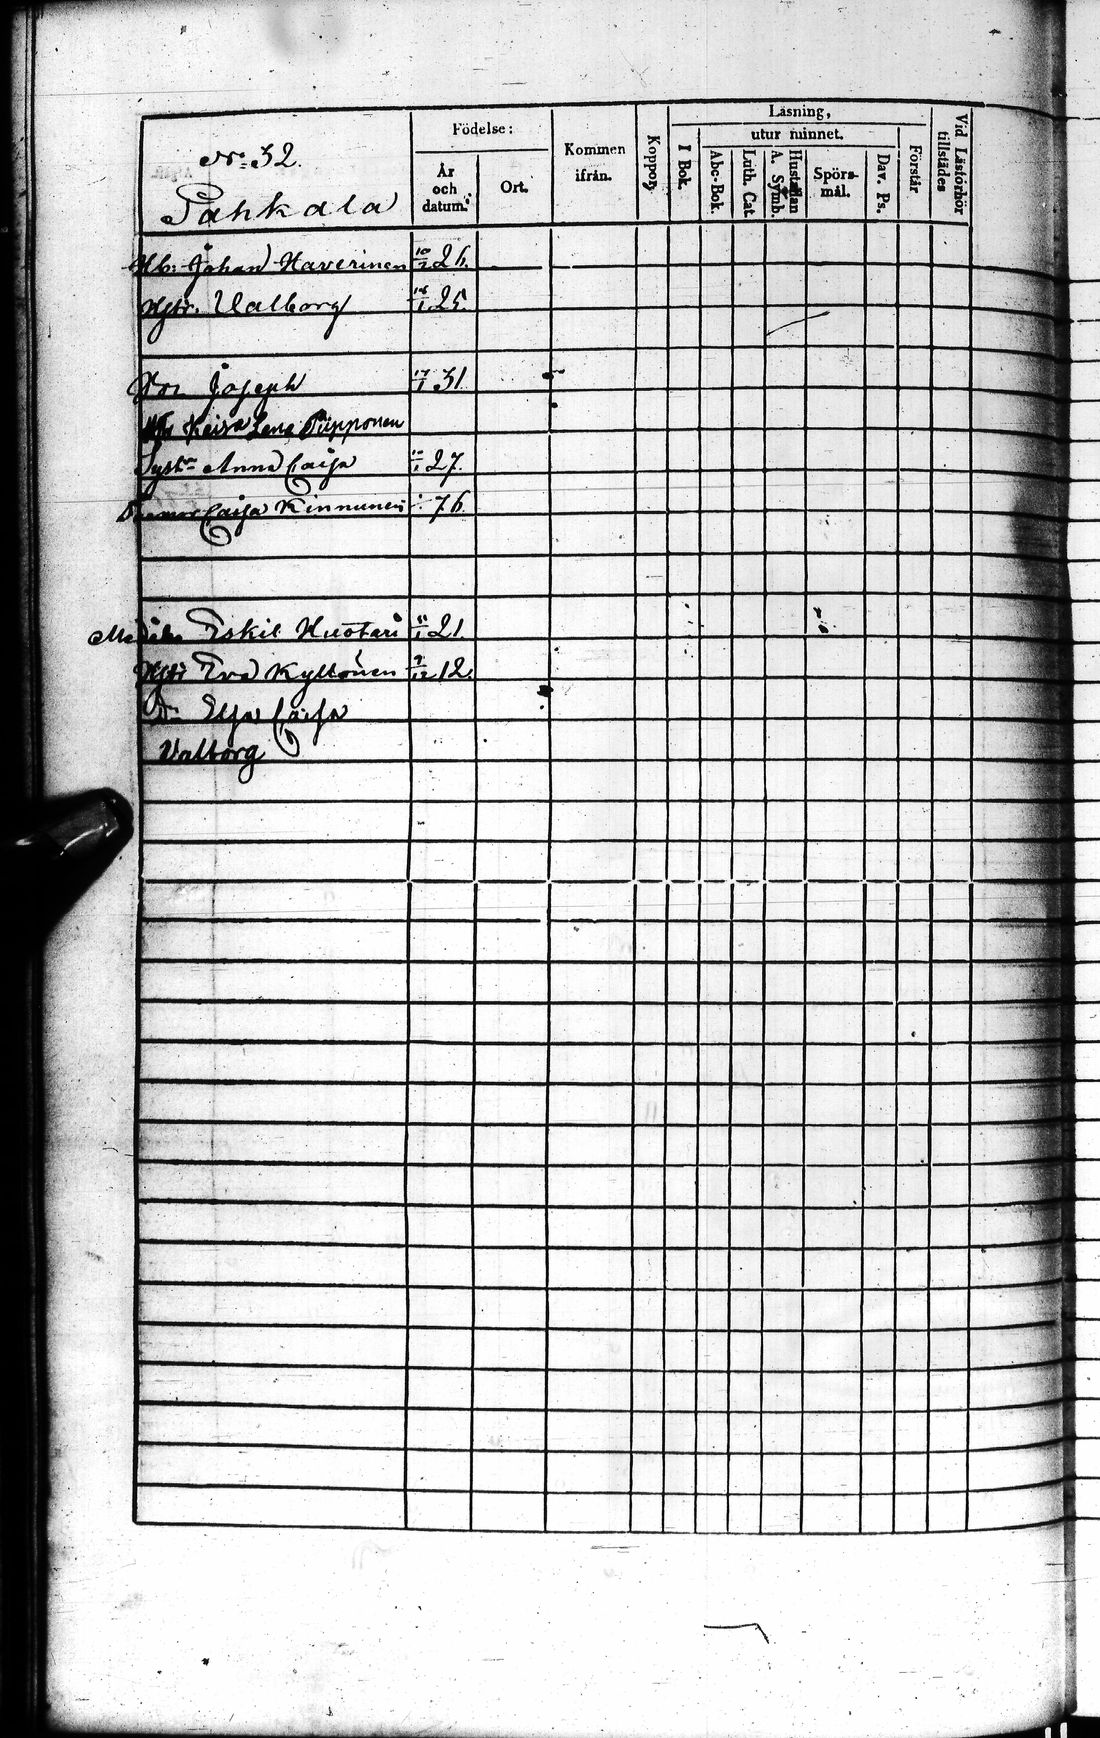 No 32.
Pahkala
Födelse:
År och datum.
Ort.
Kommen ifrån.
Koppor,
Läsning,
I Bok.
utur minnet.
Abc-Bok.
Luth. Cat.
Hustaflan A. Symb.
Spörsmål.
Dav. Ps.
Förstår
Vid Läsförhör tillstädes
Hb: Johan Haverinen 10/2 26.
Hstr. Valborg 25.
Bror Joseph 17/1 31
Hu Keisa Lena Piipponen
Systr Anna Caisa 27.
Caisa Kinnunen 76.
Eskil Huotari 21.
Hstr Eva Kyllönen 9/12 12.
Dr Elsa Caisa
Valborg